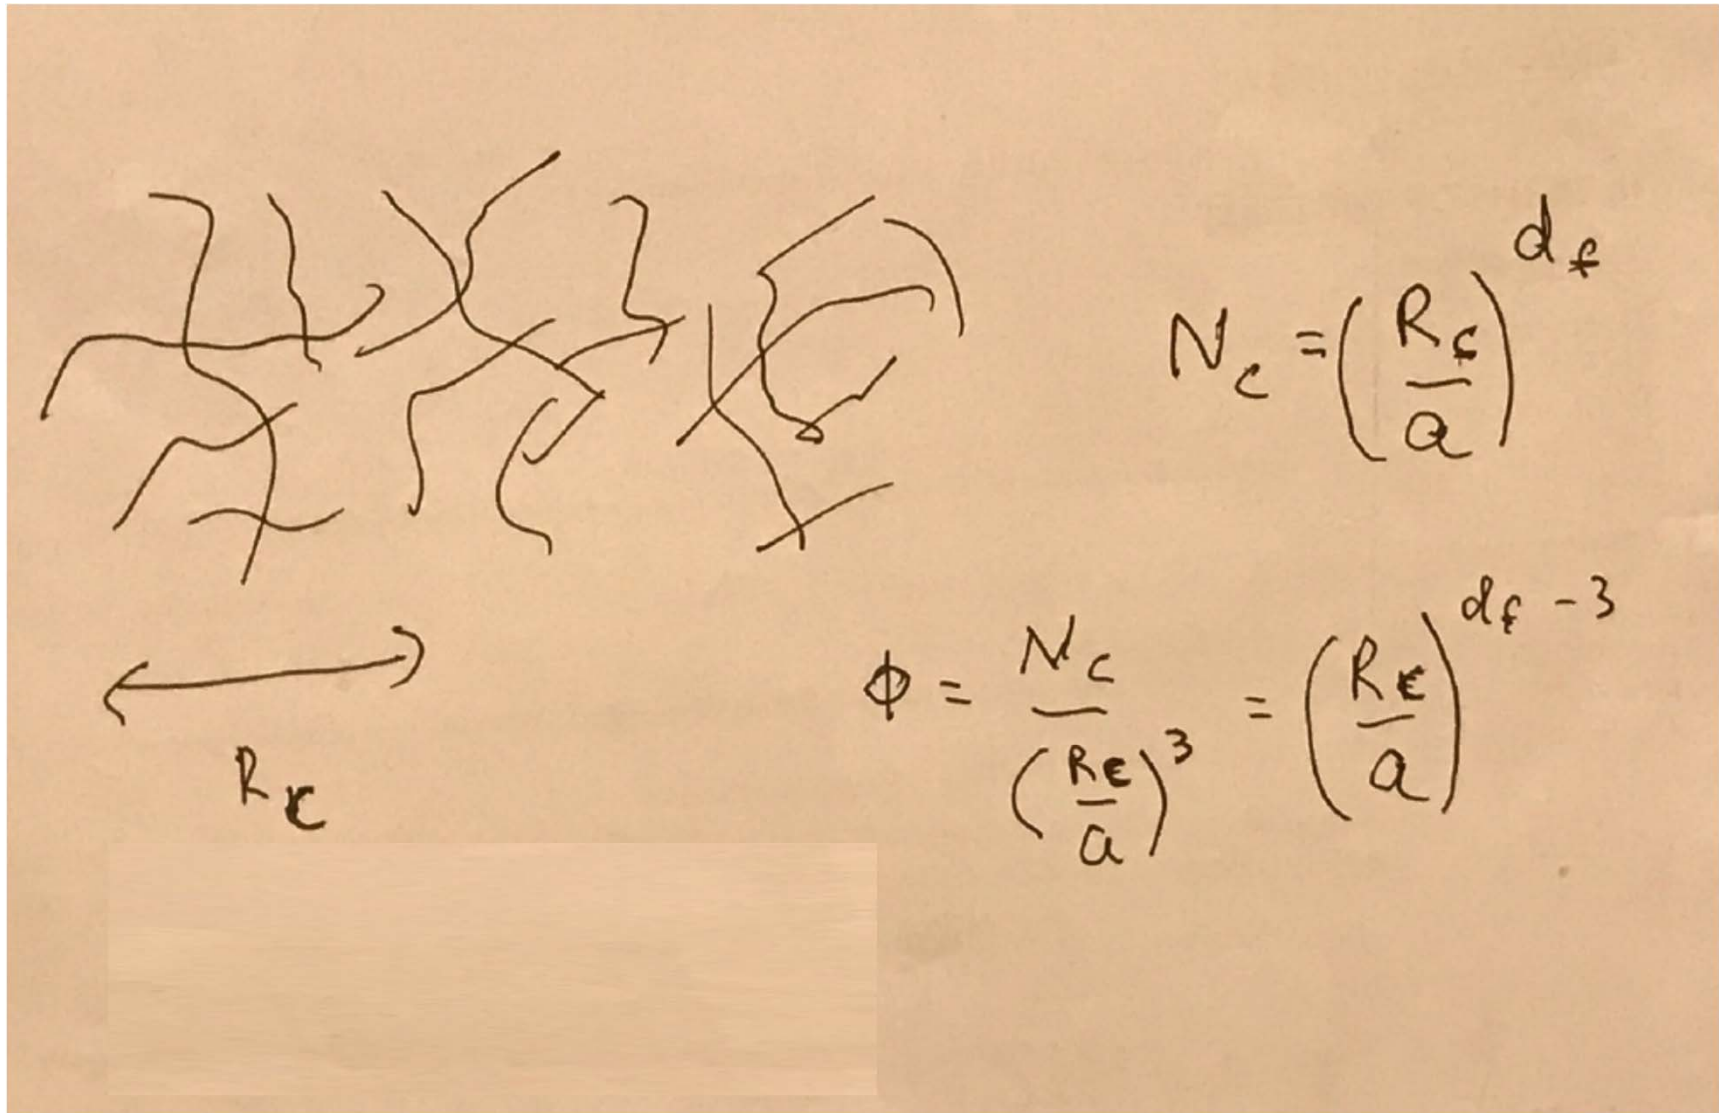 N_c = (R_c / a)^{d_f}
R_c
φ = N_c / (R_c / a)^3 = (R_c / a)^{d_f - 3}